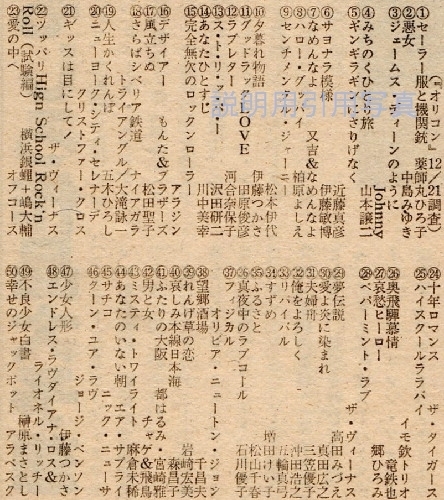 (『オリコン』12／21調査)
①セーラー服と機関銃　薬師丸ひろ子
②悪女　中島みゆき
③ジェームス・ディーンのように
Johnny
④みちのくひとり旅　山本譲二
⑤ギンギラギンにさりげなく
近藤真彦
⑥サヨナラ模様　伊藤敏博
⑦なめんなよ　又吉&なめんなよ
⑧ハロー・グッバイ　柏原よしえ
⑨センチメンタル・ジャーニー
松本伊代
⑩夕暮れ物語　伊藤つかさ
⑪グッドラックLOVE　田原俊彦
⑫ラブレター　河合奈保子
⑬ス・ト・リ・ッ・パ・ー　沢田研二
⑭あなたひとすじ　川中美幸
⑮完全無欠のロックンローラー
アラジン
⑯デザイアー　もんた&ブラザーズ
⑰風立ちぬ　松田聖子
⑱さらばシベリア鉄道　ナイアガラ
トライアングル／大滝詠一
⑲人生かくれんぼ　五木ひろし
⑳ニューヨーク・シティ・セレナーデ
クリストファー・クロス
㉑ギッスは目にして!
ザ・ヴィーナス
㉒ツッパリHigh School Rock'n
Roll (試験編)　横浜銀蝿+嶋大輔
㉓愛の中へ　オフコース
㉔十年ロマンス　ザ・タイガース
㉕ハイスクールララバイ
イモ欽トリオ
㉖奥飛騨慕情　竜鉄也
㉗哀愁ヒロー　郷ひろみ
㉘ペパーミント・ラブ
ザ・ヴィーナス
㉙夢伝説　高田みづえ
㉚愛よ炎に染まれ　真田広之
㉛夫婦舟　三笠優子
㉜俺をよろしく　沖田浩之
㉝リバイバル　五輪真弓
㉞すずめ　増田けい子
㉟ふるさと　松山千春
㊱真夜中のラブコール　石川優子
㊲フィジカル
オリビア・ニュートン・ジョン
㊳望郷酒場　千昌夫
㊴れんげ草の恋　岩崎宏美
㊵哀しみ本線日本海　森昌子
㊶ふたりの大阪　都はるみ・宮崎雅
㊷男と女　チャゲ&飛鳥
㊸ミスティ・トワイライト　麻倉未稀
㊹あなたのいない朝　エア・サプライ
㊺サチコ　ニック・ニューサ
㊻ターン・ユア・ラヴ
ジョージ・ベンソン
㊼少女人形　伊藤つかさ
㊽エンドレス・ラヴダイアナ・ロス&
ライオネル・リッチー
㊾不良少女白書　榊原まさとし
㊿幸せのジャックポット　アラベスク
説明用引用写真